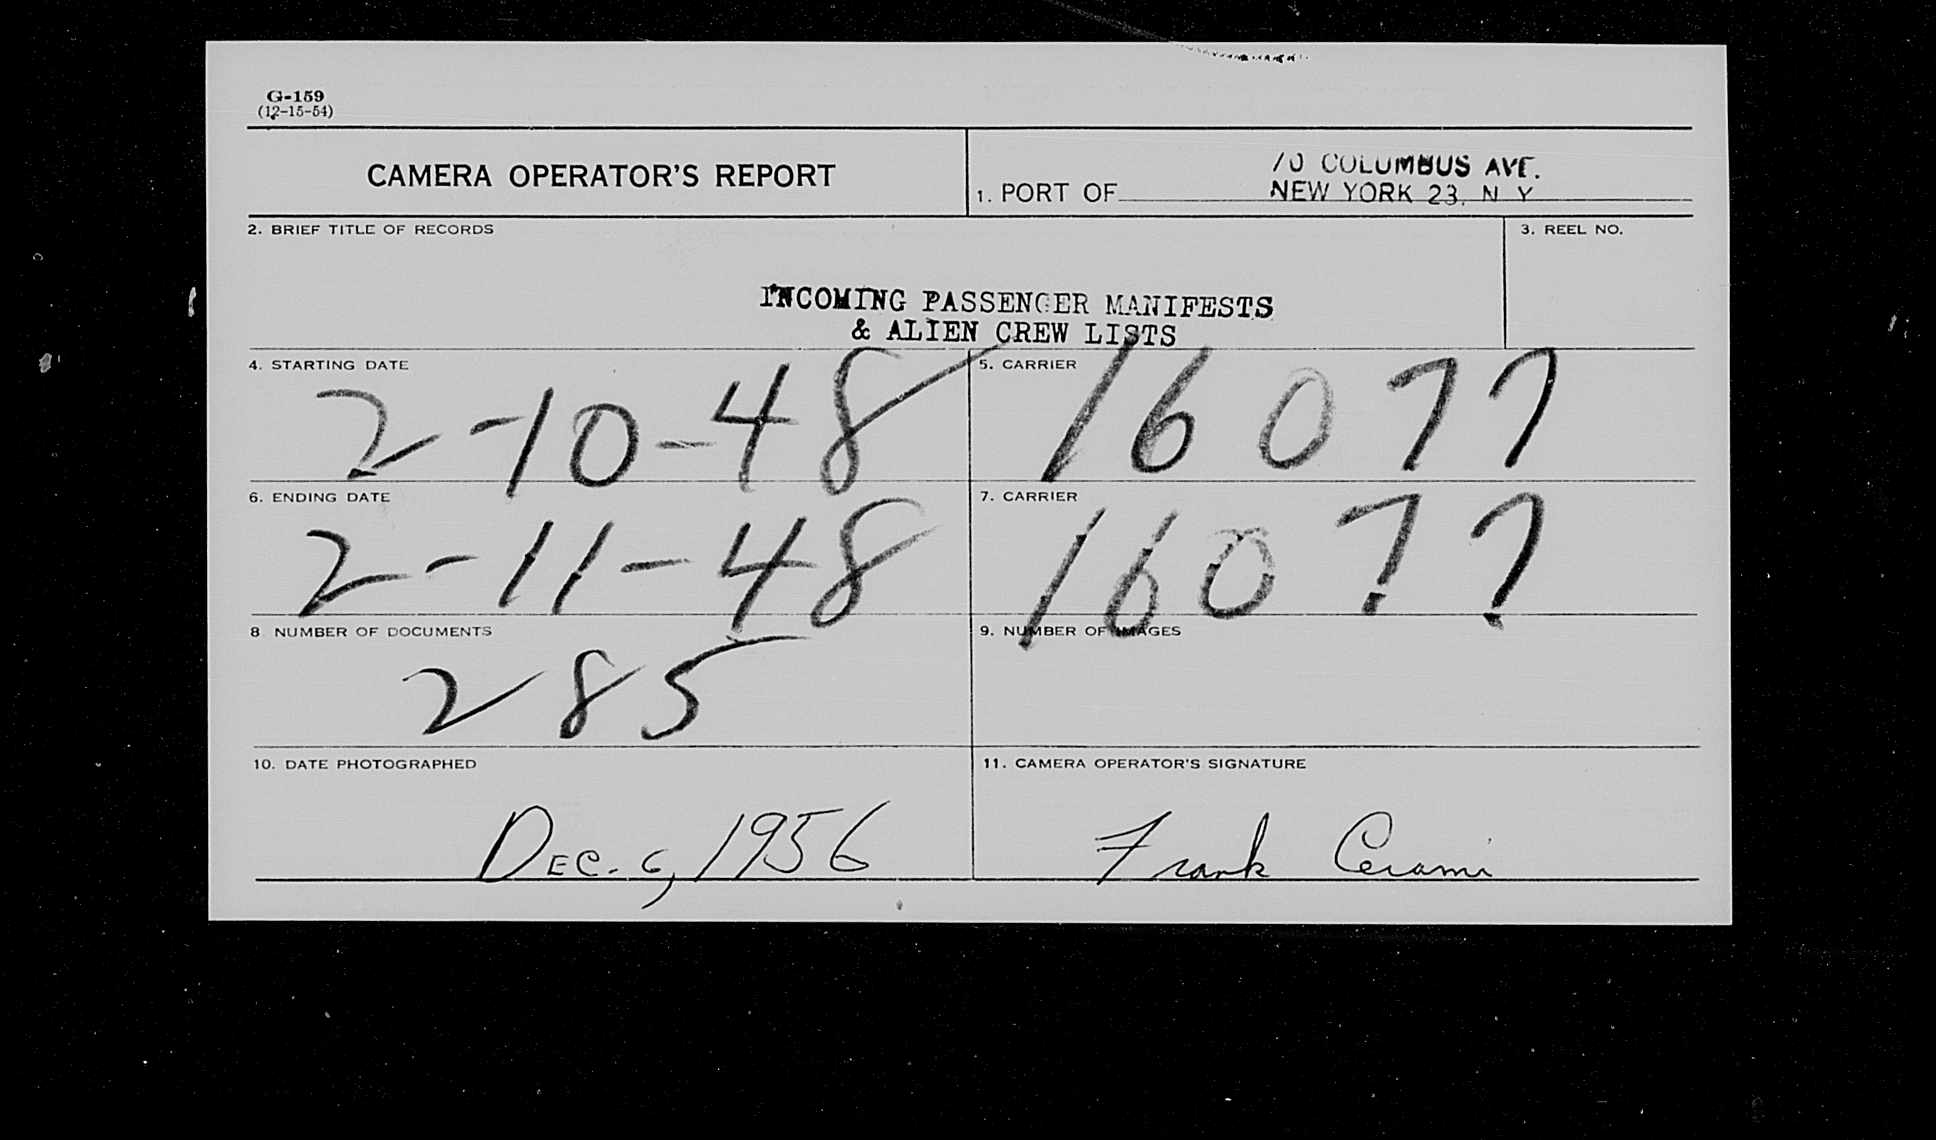 G-159
(12-15-54)
CAMERA OPERATOR'S REPORT
70 COLUMBUS AVE.
1. PORT OF NEW YORK 23, N Y
2. BRIEF TITLE OF RECORDS
3. REEL NO.
INCOMING PASSENGER MANIFESTS
& ALIEN CREW LISTS
4. STARTING DATE
2-10-48
5. CARRIER
16077
6. ENDING DATE
2-11-48
7. CARRIER
16077
8 NUMBER OF DOCUMENTS
285
9. NUMBER OF IMAGES
10. DATE PHOTOGRAPHED
DEC. 6, 1956
11. CAMERA OPERATOR'S SIGNATURE
Frank Cerami